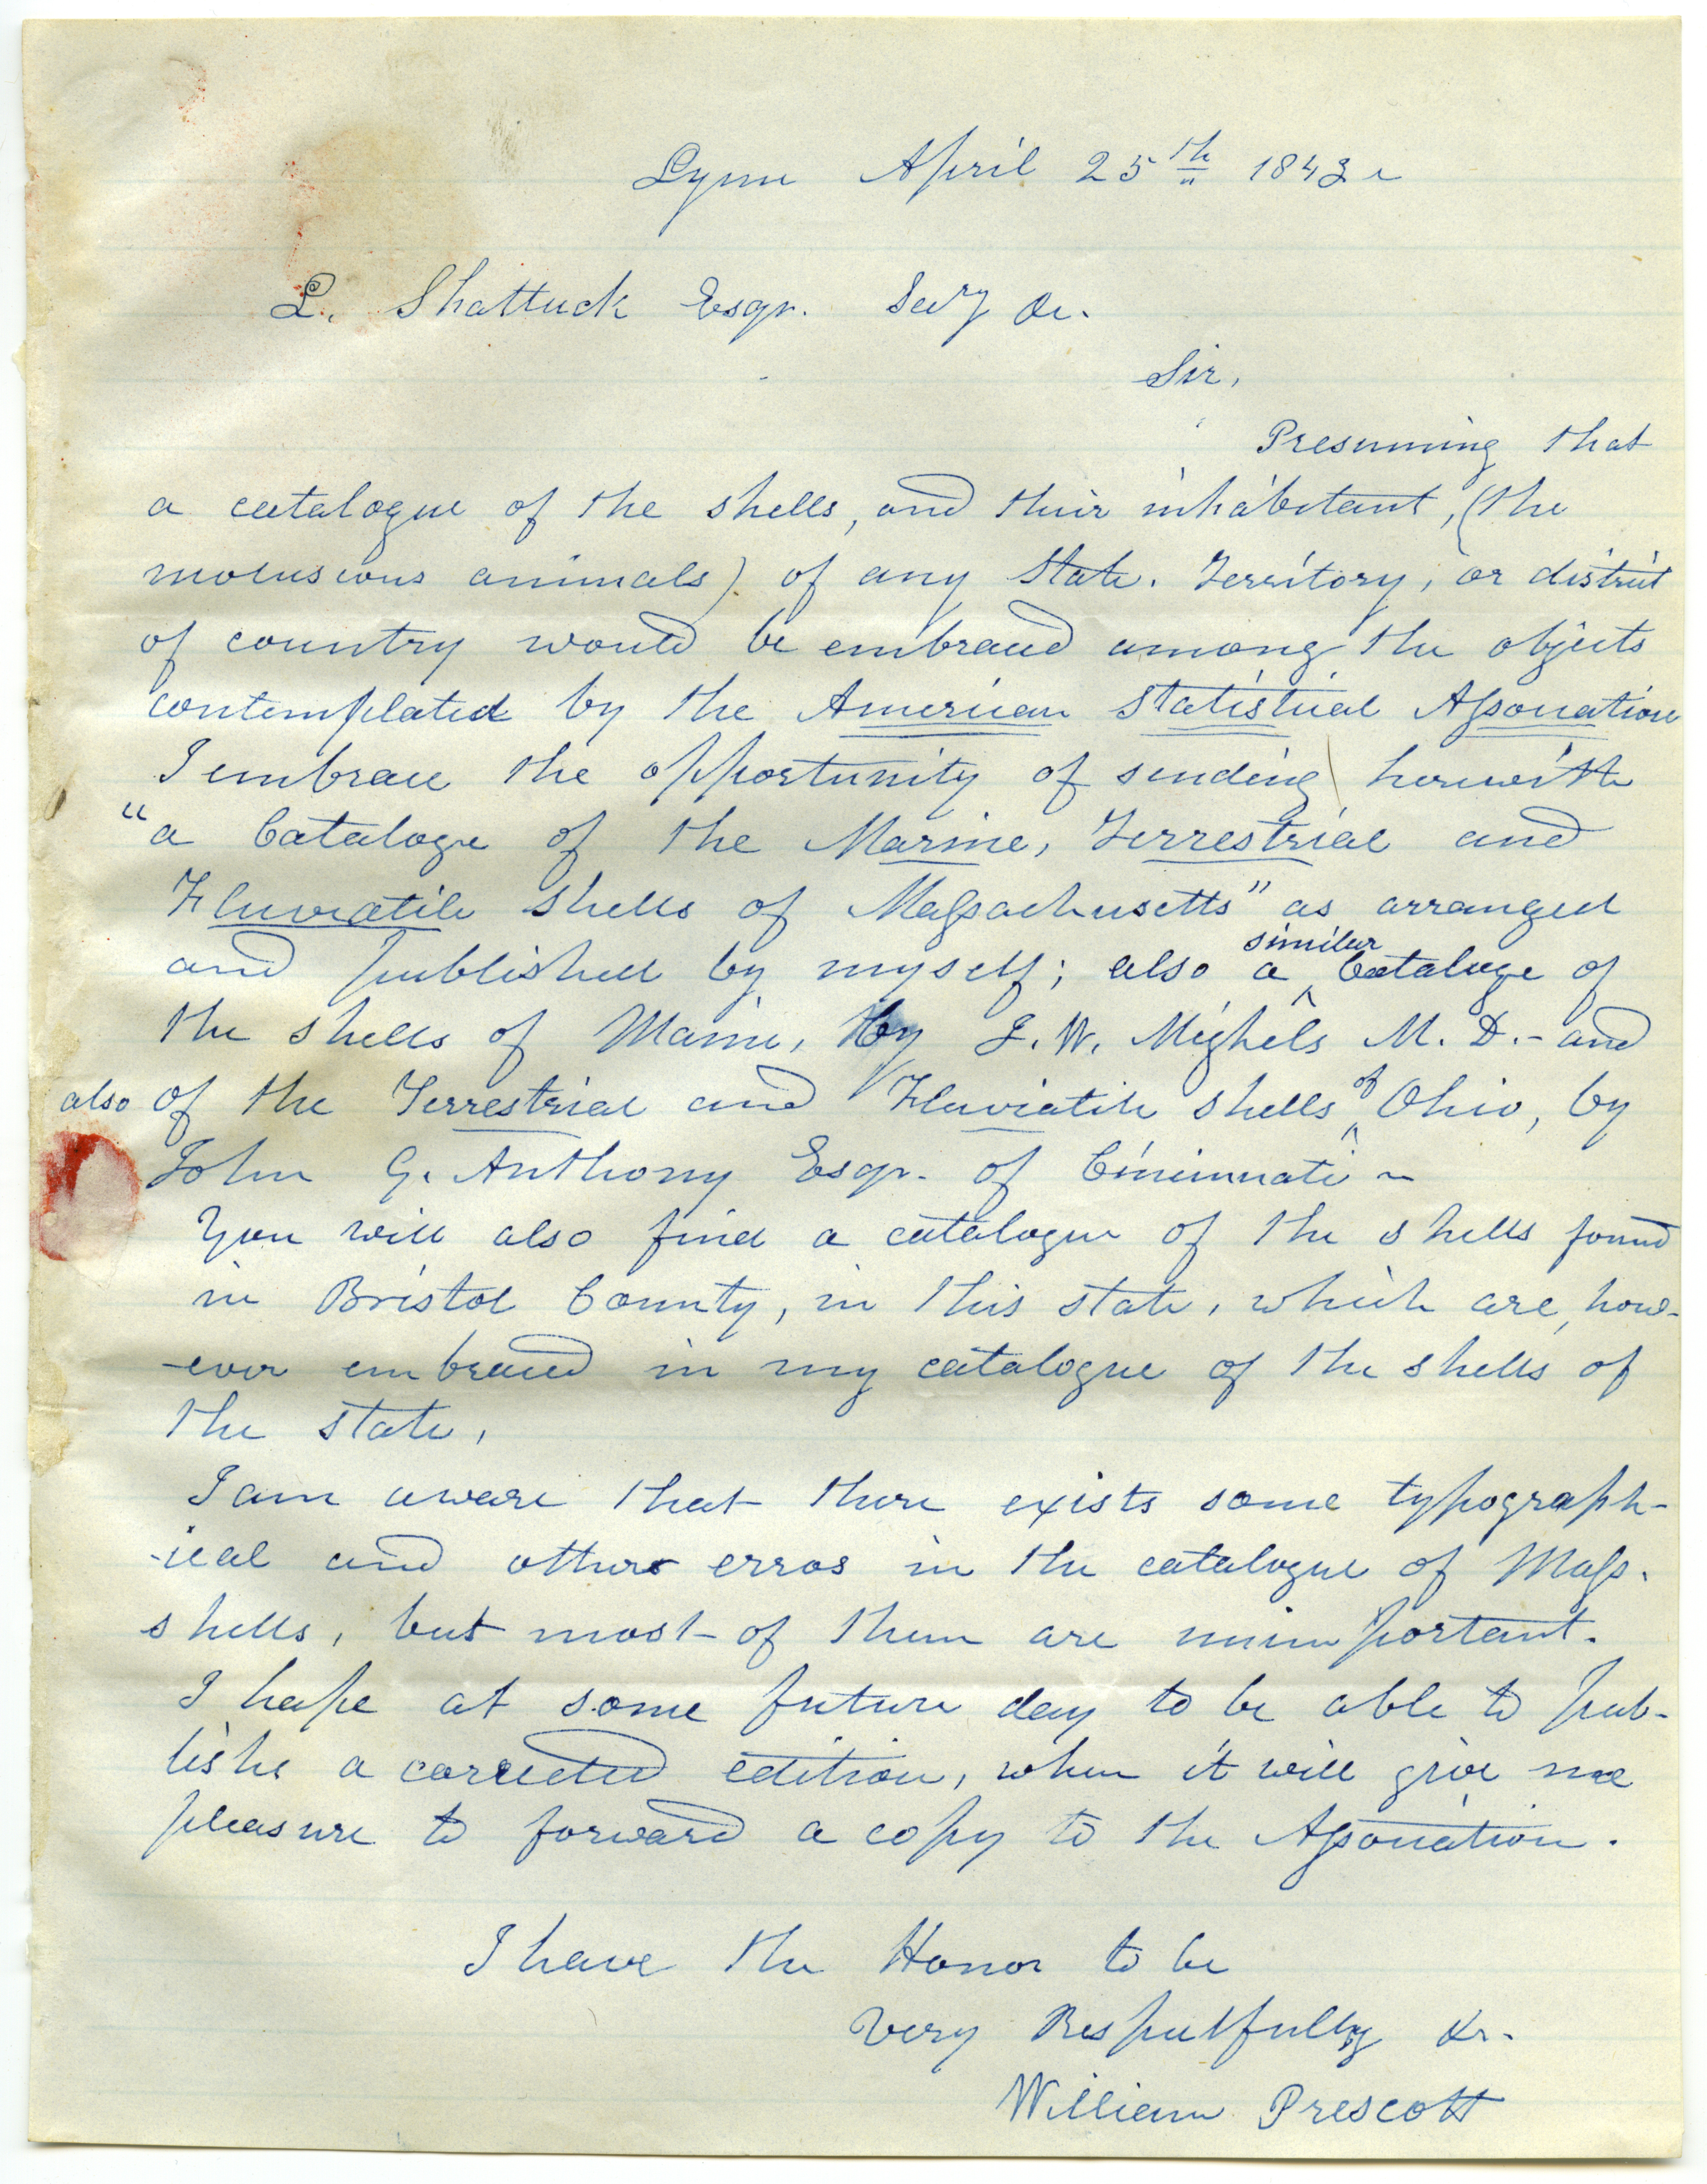 Lynn April 25th 1843
L. Shattuck Esqr. Secy &c.
Sir,
Presuming that
a catalogue of the shells, and their inhabitant, (the
moluscous animals) of any State. Territory, or district
of country would be embraced among the objects
contemplated by the American Statistical Association
I embrace the opportunity of sending herewith
"a Cataloge of the Marine, Terrestrial and
Fluviatile Shells of Massachusetts" as arranged
and published by myself; also a similar Cataloge of
the shells of Maine, by J. W. Mighels M. D. - and
also of the Terrestrial and Fluviatile shells of Ohio, by
John G. Anthony Esqr. of Cincinnati ~
You will also find a catalogue of the shells found
in Bristol County, in this state, which are, how-
-ever embraced in my catalogue of the shells of
the state.
I am aware that there exists some typograph-
-ical and others erros in the catalogue of Mass.
shells, but most of them are unimportant.
I hope at some future day to be able to pub-
lishe a corrected edition, when it will give me
pleasure to forward a copy to the Association.
I have the Honor to be
Very Respectfully &c.
William Prescott